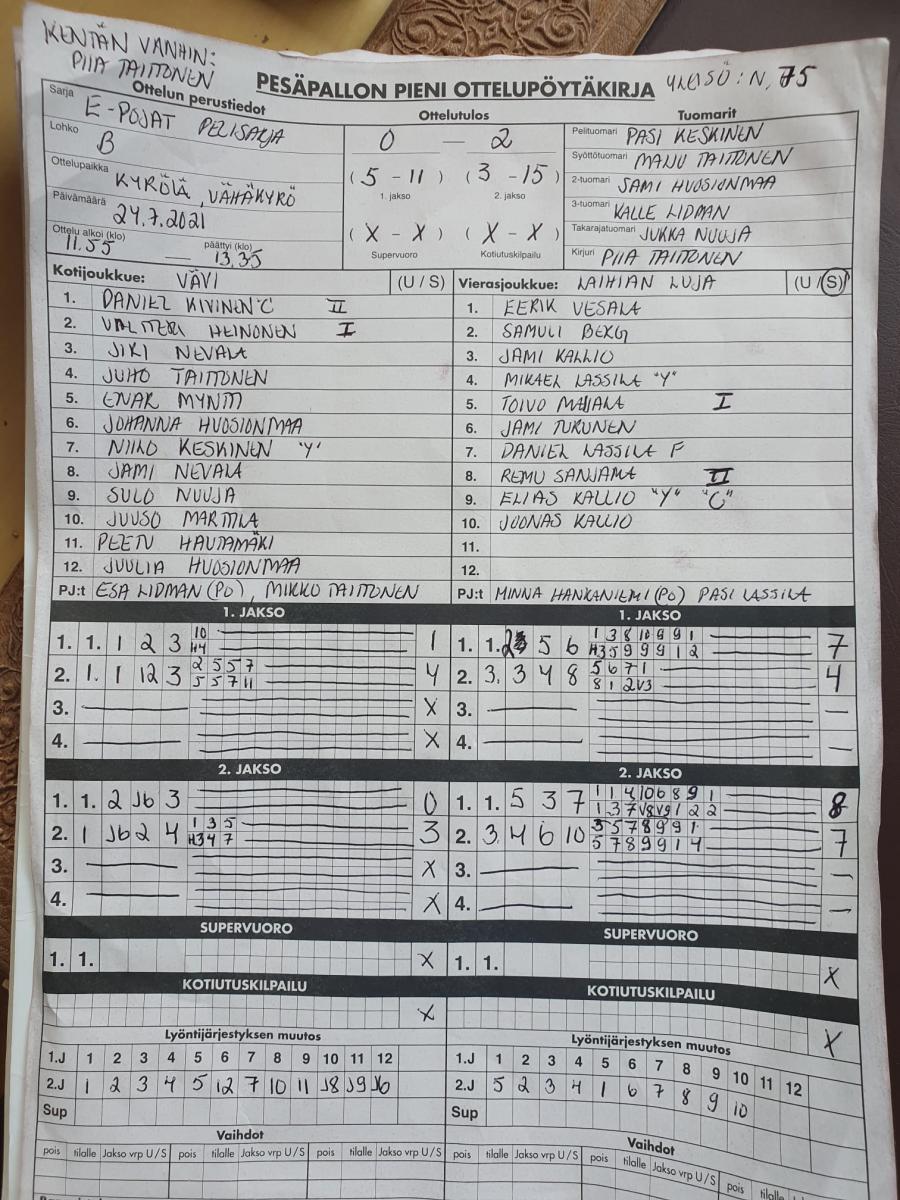 KENTÄN VANHIN:
PIIA TAITTONEN
PESÄPALLON PIENI OTTELUPÖYTÄKIRJA
YLEISÖ: N. 75
Ottelun perustiedot
Sarja E-POJAT PELISARJA
Lohko B
Ottelupaikka KYRÖLÄ, VÄHÄKYRÖ
Päivämäärä 24.7.2021
Ottelu alkoi (klo) 11.55 — päättyi (klo) 13.35
Ottelutulos
0 — 2
(5 - 11) (3 - 15)
1. jakso 2. jakso
(X - X) (X - X)
Supervuoro Kotiutuskilpailu
Tuomarit
Pelituomari PASI KESKINEN
Syöttötuomari MANU TAITTONEN
2-tuomari SAMI HUOSIONMAA
3-tuomari KALLE LIDMAN
Takarajatuomari JUKKA NUUJA
Kirjuri PIIA TAITTONEN
Kotijoukkue: VÄVI (U / S)
1. DANIEL KIVINEN "C" II
2. VALTTERI HEINONEN I
3. JIRI NEVALA
4. JUHO TAITTONEN
5. ENAR MYNTTI
6. JOHANNA HUOSIONMAA
7. NIILO KESKINEN "Y"
8. JAMI NEVALA
9. SULO NUUJA
10. JUUSO MARTTILA
11. PEETU HAUTAMÄKI
12. JUULIA HUOSIONMAA
PJ:t ESA LIDMAN (PO), MIKKO TAITTONEN
Vierasjoukkue: LAIHIAN LUJA (U / S)
1. EERIK VESALA
2. SAMULI BERG
3. JAMI KALLIO
4. MIKAEL LASSILA "Y"
5. TOIVO I
6. JAMI TURUNEN
7. DANIEL LASSILA F
8. REMU II
9. ELIAS KALLIO "Y" "C"
10. JOONAS KALLIO
11.
12.
PJ:t MINNA HANKANIEMI (PO) PASI LASSILA
1. JAKSO
1. 1. 1 2 3 10 H4 1
2. 1. 1 12 3 2 5 5 7 5 5 7 11 4
3. X
4. X
1. JAKSO
1. 1. 5 6 1 3 8 10 9 9 1 H3 5 9 9 9 1 2 7
2. 3. 3 4 8 5 6 7 1 8 1 2 V3 4
3. —
4. —
2. JAKSO
1. 1. 2 J6 3 0
2. 1 J6 2 4 1 3 5 H3 4 7 3
3. X
4. X
2. JAKSO
1. 1. 5 3 7 1 1 4 10 6 8 9 1 1 3 7 V8 V9 1 2 2 8
2. 3. 4 6 10 3 5 7 8 9 9 1 5 7 8 9 9 1 4 7
3. —
4. —
SUPERVUORO
1. 1. X
SUPERVUORO
1. 1. X
KOTIUTUSKILPAILU
X
KOTIUTUSKILPAILU
X
Lyöntijärjestyksen muutos
1.J 1 2 3 4 5 6 7 8 9 10 11 12
2.J 1 2 3 4 5 12 7 10 11 J8 J9 J6
Sup
Lyöntijärjestyksen muutos
1.J 1 2 3 4 5 6 7 8 9 10 11 12
2.J 5 2 3 4 1 6 7 8 9 10
Sup
Vaihdot
pois tilalle Jakso vrp U / S pois tilalle Jakso vrp U / S pois tilalle Jakso vrp U / S
Vaihdot
pois tilalle Jakso vrp U / S pois tilalle Jakso vrp U / S pois tilalle Jakso vrp U / S